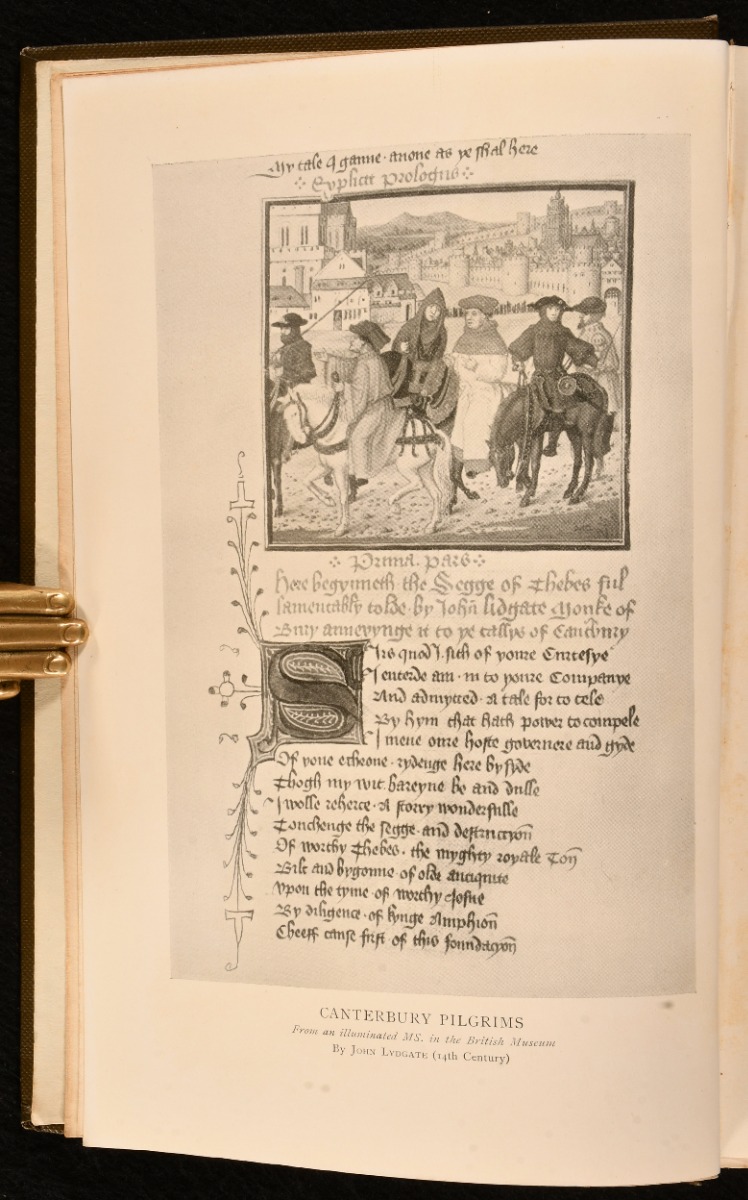 My tale I ganne · anone as ye shal here
Explicit Prologus
Prima · pars
Here begynneth the Segge of Thebes ful
lamentably tolde · by John lidgate Monke of
Bury annexynge it to ye tallys of Cantbury
Sirs quod I · sith of youre Curtesye
I enterde am · in to youre Companye
And admytted · a tale for to tele
By hym that hath power to compele
I mene oure hoste governere and gyde
Of youe echeone · rydenge here by syde
Thogh my wit bareyne be and dulle
I wolle reherce · a storry wonderfulle
Touchenge the segge · and destruccyon̄
Of worthy Thebes · the myghty royale Ton̄
Bilt and bygonne · of olde antiquite
Vpon the tyme · of worthy Josue
By diligence · of kynge Amphion̄
Cheeff cause first · of this foundacyon̄
CANTERBURY PILGRIMS
From an illuminated MS. in the British Museum
By JOHN LYDGATE (14th Century)